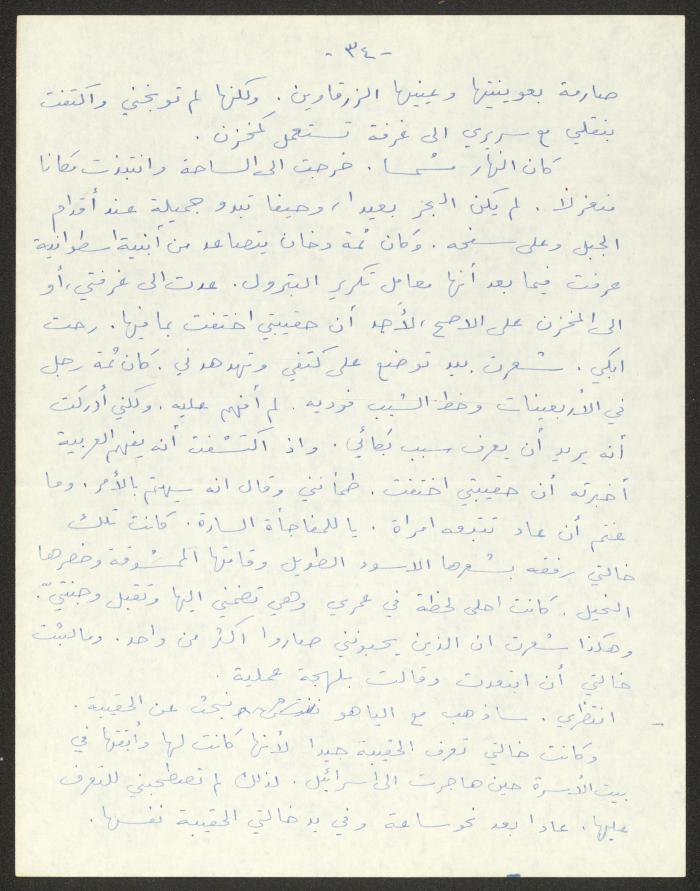 - ٣٤ -
صارمة بعوينيتها وعينيها الزرقاوين. ولكنها لم توبخني واكتفت
بنقلي مع سريري الى غرفة تستعمل كمخزن.
كان النهار مشمسا. خرجت الى الساحة وانتبذت مكانا
منعزلا. لم يكن البحر بعيدا، وحيفا تبدو جميلة عند أقدام
الجبل وعلى سفحه. وكان ثمة دخان يتصاعد من أبنية اسطوانية
عرفت فيما بعد أنها معامل تكرير البترول. عدت الى غرفتي، أو
الى المخزن على الاصح، لأجد أن حقيبتي اختفت بما فيها. رحت
ابكي. شعرت بيد توضع على كتفي وتهدهدني. كان ثمة رجل
في الأربعينات وخط الشيب فوديه. لم أفهم عليه. ولكني أدركت
أنه يريد أن يعرف سبب بكائي. واذ اكتشفت أنه يفهم العربية
أخبرته أن حقيبتي اختفت. طمأنني وقال انه سيهتم بالأمر. وما
عتم أن عاد تتبعه امرأة. يا للمفاجأة السارة. كانت تلك
خالتي رفقه بشعرها الاسود الطويل وقامتها الممشوقة وخصرها
النحيل. كانت احلى لحظة في عمري وهي تضمني اليها وتقبل وجنتيّ.
وهكذا شعرت ان الذين يحبونني صاروا اكثر من واحد. وما لبثت
خالتي أن ابتعدت وقالت بلهجة عملية.
- انتظري. سأذهب مع الياهو نبحث عن الحقيبة.
وكانت خالتي تعرف الحقيبة جيدا لأنها كانت لها وأبقتها في
بيت الأسرة حين هاجرت الى اسرائيل. لذلك لم تصطحبني للتعرف
عليها. عادا بعد نحو ساعة وفي يد خالتي الحقيبة نفسها.